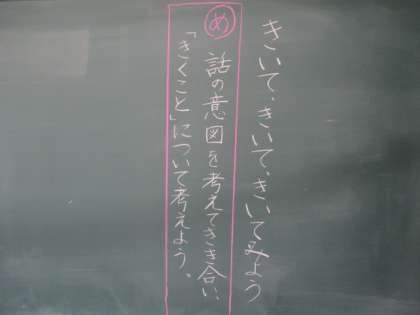 きいて、きいて、きいてみよう
め 話の意図を考えてきき合い、
「きくこと」について考えよう。